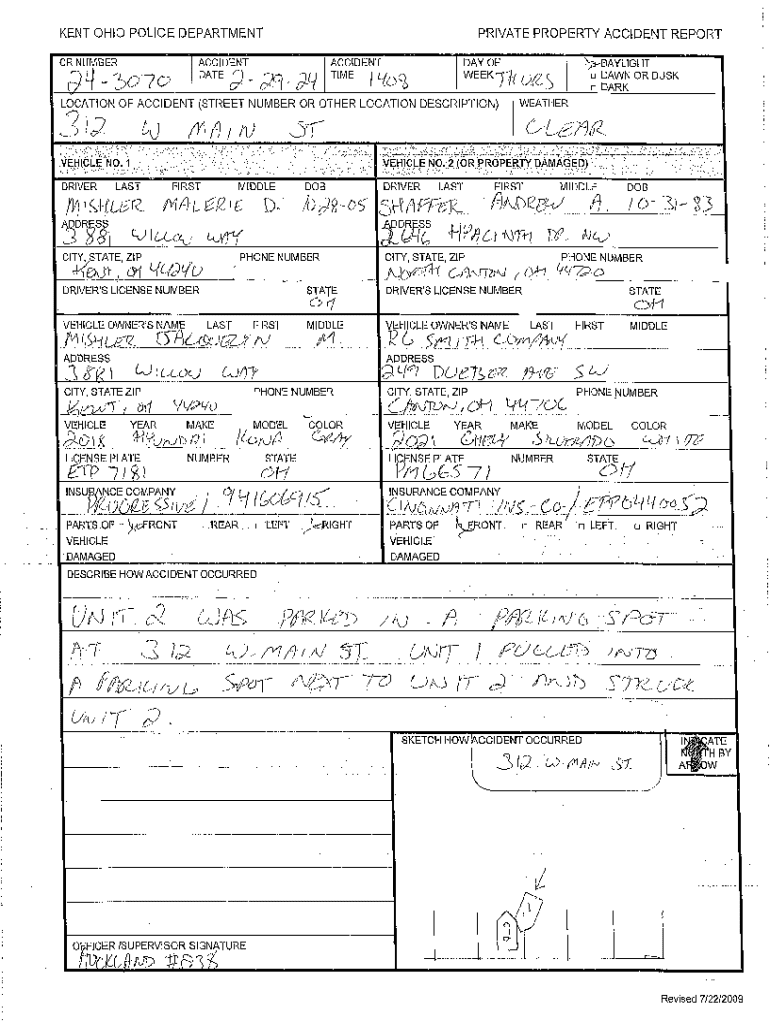 KENT OHIO POLICE DEPARTMENT PRIVATE PROPERTY ACCIDENT REPORT
CR NUMBER ACCIDENT DATE ACCIDENT TIME DAY OF WEEK DAYLIGHT
24-3070 2-29-24 1408 THURS DAWN OR DUSK
DARK
LOCATION OF ACCIDENT (STREET NUMBER OR OTHER LOCATION DESCRIPTION) WEATHER
312 W MAIN ST CLEAR
VEHICLE NO. 1 VEHICLE NO. 2 (OR PROPERTY DAMAGED)
DRIVER LAST FIRST MIDDLE DOB DRIVER LAST FIRST MIDDLE DOB
MISHLER MALERIE D. SHAFFER ANDREW A. 10-31-83
ADDRESS ADDRESS
3881 WILLOW WAY 2646 HYACINTH DR. NW
CITY, STATE, ZIP PHONE NUMBER CITY, STATE, ZIP PHONE NUMBER
KENT, OH 44240 NORTH CANTON, OH 44720
DRIVER'S LICENSE NUMBER STATE DRIVER'S LICENSE NUMBER STATE
OH OH
VEHICLE OWNER'S NAME LAST FIRST MIDDLE VEHICLE OWNER'S NAME LAST FIRST MIDDLE
MISHLER M. RG SMITH COMPANY
ADDRESS ADDRESS
3881 WILLOW WAY 1249 DUEBER AVE SW
CITY, STATE ZIP PHONE NUMBER CITY, STATE, ZIP PHONE NUMBER
KENT, OH 44240 CANTON, OH 44706
VEHICLE YEAR MAKE MODEL COLOR VEHICLE YEAR MAKE MODEL COLOR
2018 HYUNDAI KONA GRAY 2021 CHEVY SILVERADO WHITE
LICENSE PLATE NUMBER STATE LICENSE PLATE NUMBER STATE
ETP 7181 OH PMG6571 OH
INSURANCE COMPANY INSURANCE COMPANY
PROGRESSIVE / 941606915 CINCINNATI INS. CO. / ETP0440052
PARTS OF FRONT REAR LEFT RIGHT PARTS OF FRONT REAR LEFT RIGHT
VEHICLE VEHICLE
DAMAGED DAMAGED
DESCRIBE HOW ACCIDENT OCCURRED
UNIT 2 WAS PARKED IN A PARKING SPOT
AT 312 W. MAIN ST. UNIT 1 PULLED INTO
A PARKING SPOT NEXT TO UNIT 2 AND STRUCK
UNIT 2.
SKETCH HOW ACCIDENT OCCURRED INDICATE
312 W. MAIN ST. NORTH BY
ARROW
1
2
OFFICER /SUPERVISOR SIGNATURE
#238
Revised 7/22/2009